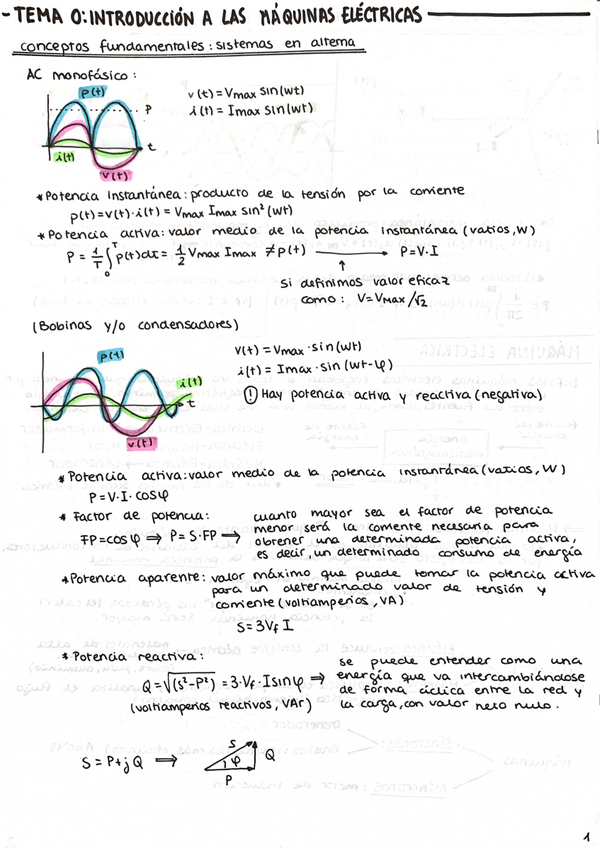 - TEMA 0: INTRODUCCIÓN A LAS MÁQUINAS ELÉCTRICAS
conceptos fundamentales: sistemas en alterna
AC monofásico:
p(t)
P
t
i(t)
v(t)
v(t) = Vmax sin(wt)
i(t) = Imax sin(wt)
* Potencia instantánea: producto de la tensión por la corriente
p(t) = v(t)·i(t) = Vmax Imax sin²(wt)
* Potencia activa: valor medio de la potencia instantánea (vatios, W)
P = 1/T ∫₀ᵀ p(t)dt = 1/2 Vmax Imax ≠ p(t) → P = V·I
↑
si definimos valor eficaz
como: V = VMAX/√2
(Bobinas y/o condensadores)
p(t)
i(t)
t
v(t)
v(t) = Vmax · sin(wt)
i(t) = Imax · sin(wt-φ)
! Hay potencia activa y reactiva (negativa)
* Potencia activa: valor medio de la potencia instantánea (vatios, W)
P = V·I·cosφ
* Factor de potencia:
FP = cosφ ⇒ P = S·FP →
cuanto mayor sea el factor de potencia
menor será la corriente necesaria para
obtener una determinada potencia activa,
es decir, un determinado consumo de energía
* Potencia aparente: valor máximo que puede tomar la potencia activa
para un determinado valor de tensión y
corriente (voltiamperios, VA)
S = 3Vf I
* Potencia reactiva:
Q = √(S²-P²) = 3·Vf·I sinφ ⇒
(voltiamperios reactivos, VAr)
se puede entender como una
energía que va intercambiándose
de forma cíclica entre la red y
la carga, con valor neto nulo.
S = P + jQ ⇒
S
φ
Q
P
1